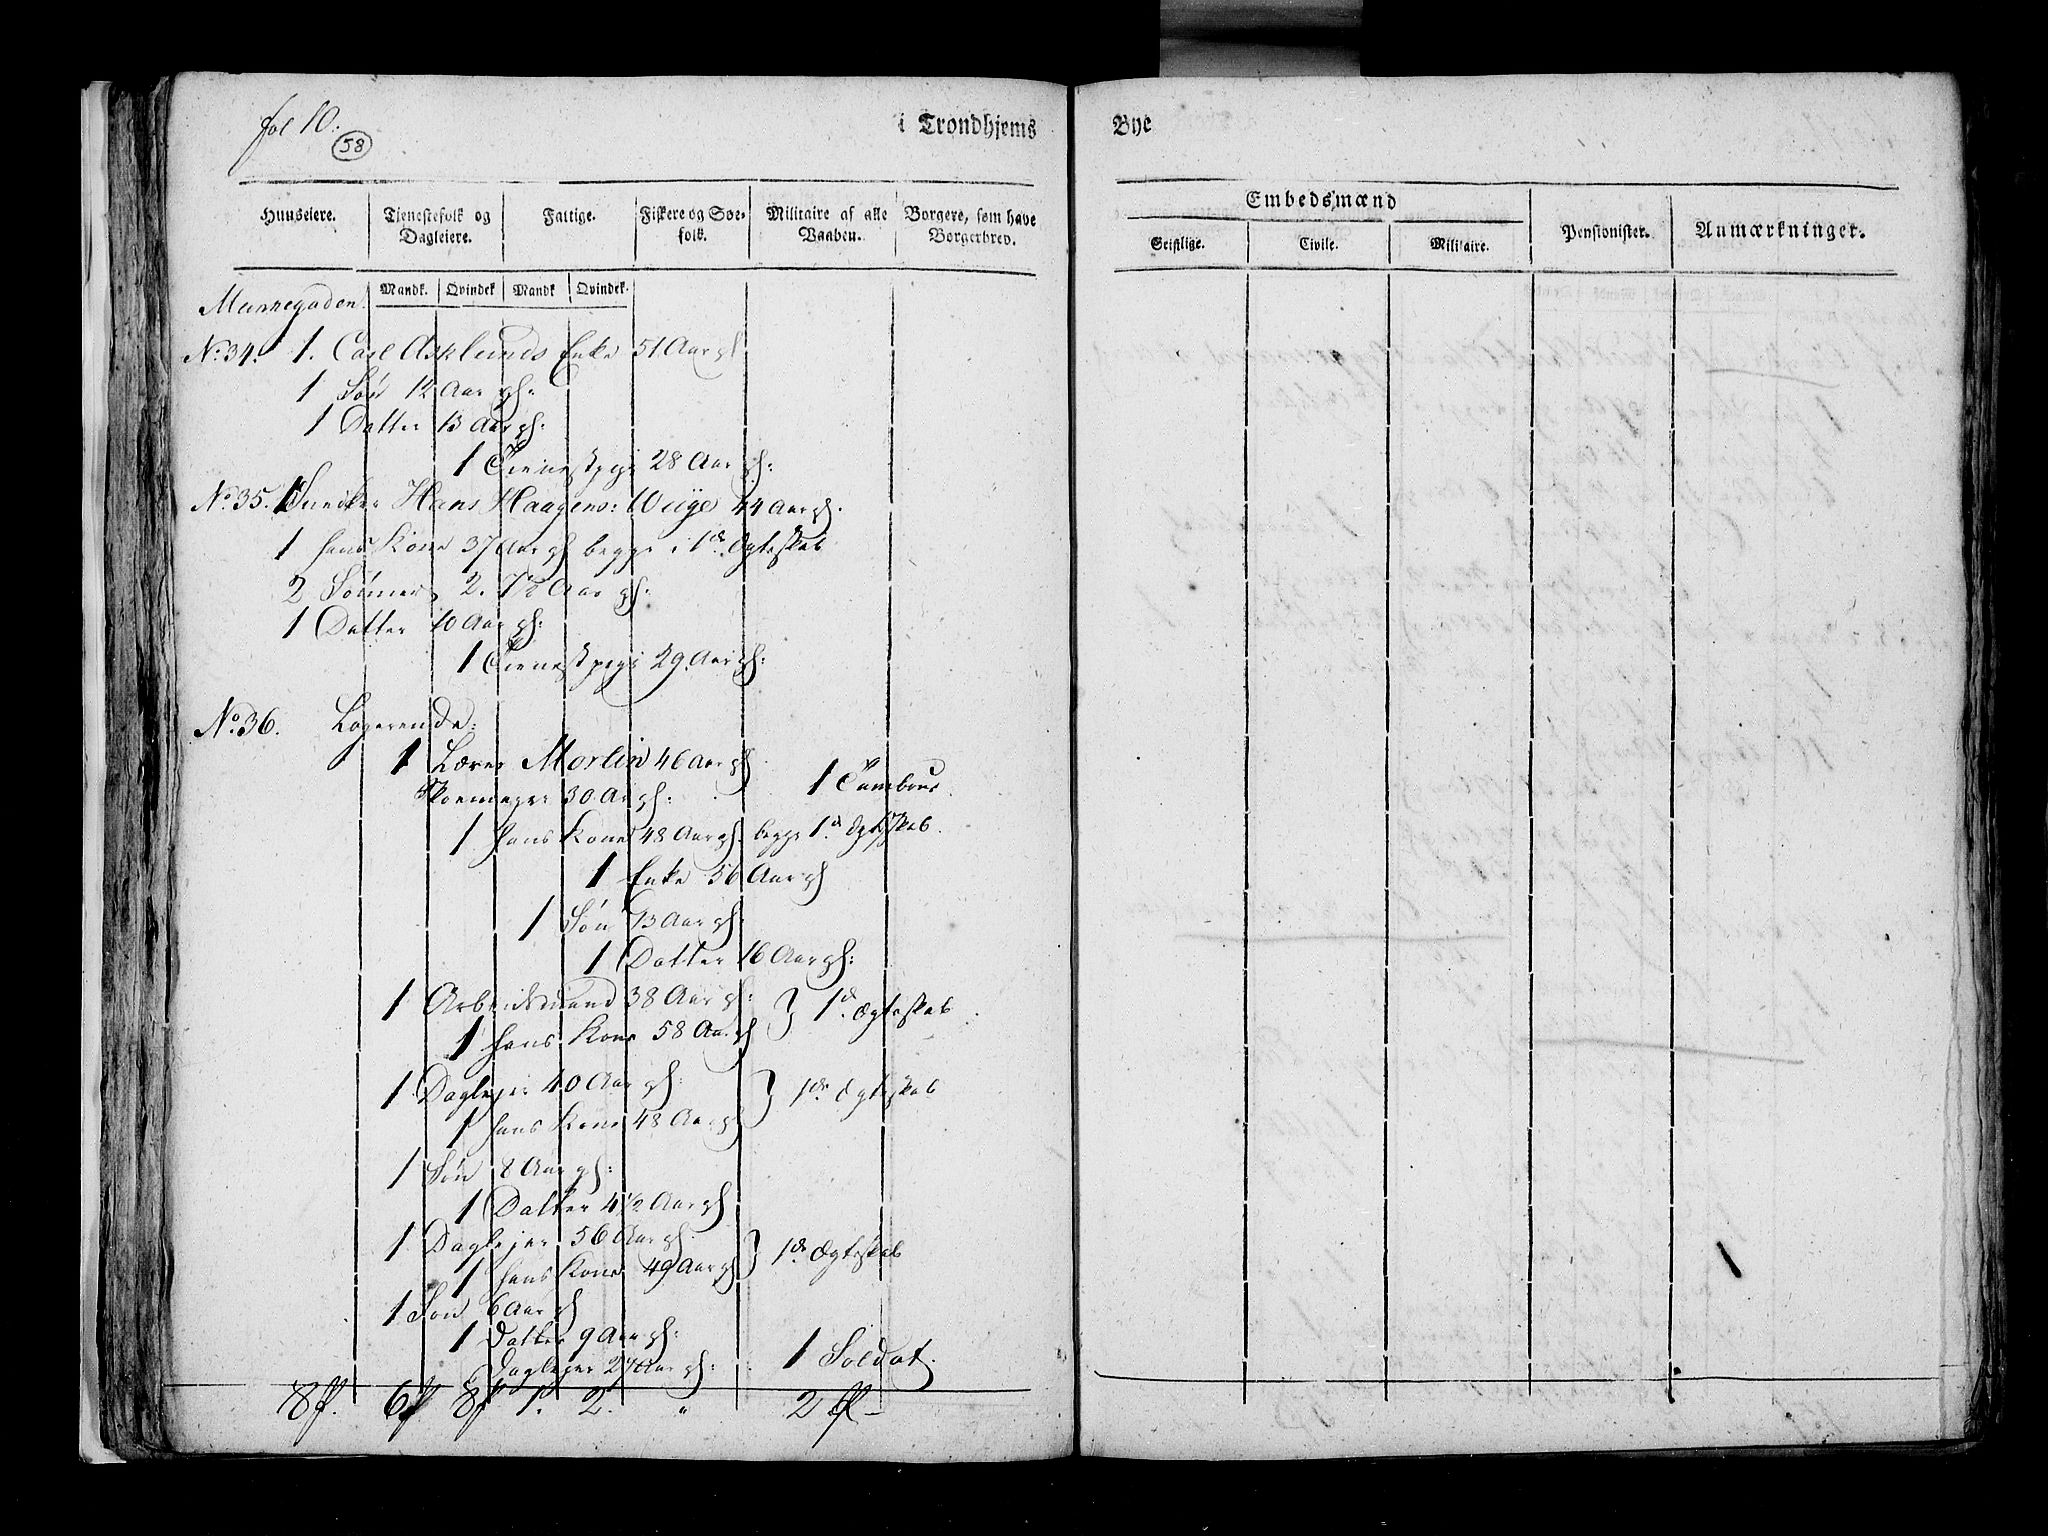 fol 10:
58
i Trondhjems Bye
Huuseiere.
Tjenestefolk og Dagleiere.
Fattige.
Fiskere og Søefolk.
Militaire af alle Vaaben.
Borgere, som have Borgerbrev.
Embedsmænd
Geistlige.
Civile.
Militaire.
Pensionister.
Anmærkninger.
Mandk. Qvindek Mandk Qvindek.
Munkegaden
No. 34. 1. Carl Asklunds Enke 51 Aar gl
1 Søn 12 Aar gl:
1 Datter 13 Aar gl:
1 Tienestpige 28 Aar gl:
No. 35. 1 Snedker Hans Haagens: Wiige 44 Aar gl.
1 hans Kone 37 Aar gl begge i 1de Ægteskab
2 Sønner 2. 7½ Aar gl:
1 Datter 10 Aar gl:
1 Tienestpige 29. Aar gl:
No. 36. Logerende:
1 Lærer Morlin 46 Aar gl
Skoemager 30 Aar gl: 1 Tambour
1 hans Kone 48 Aar gl. begge 1de Ægteskab.
1 Enke 56 Aar gl
1 Søn 13 Aar gl.
1 Datter 16 Aar gl:
1 Arbeidsmand 38 Aar gl:
1 hans Kone 58 Aar gl } 1de Ægteskab
1 Daglejer 40 Aar gl:
1 hans Kone 48 Aar gl } 1de Ægteskab
1 Søn 8 Aar gl:
1 Datter 4½ Aar gl
1 Daglejer 56 Aar gl.
1 hans Kone 49 Aar gl } 1de Ægteskab
1 Søn 6 Aar gl
1 Datter 9 Aar gl:
Daglejer 27 Aar gl: 1 Soldat.
8 6 8 1. 2. " 2